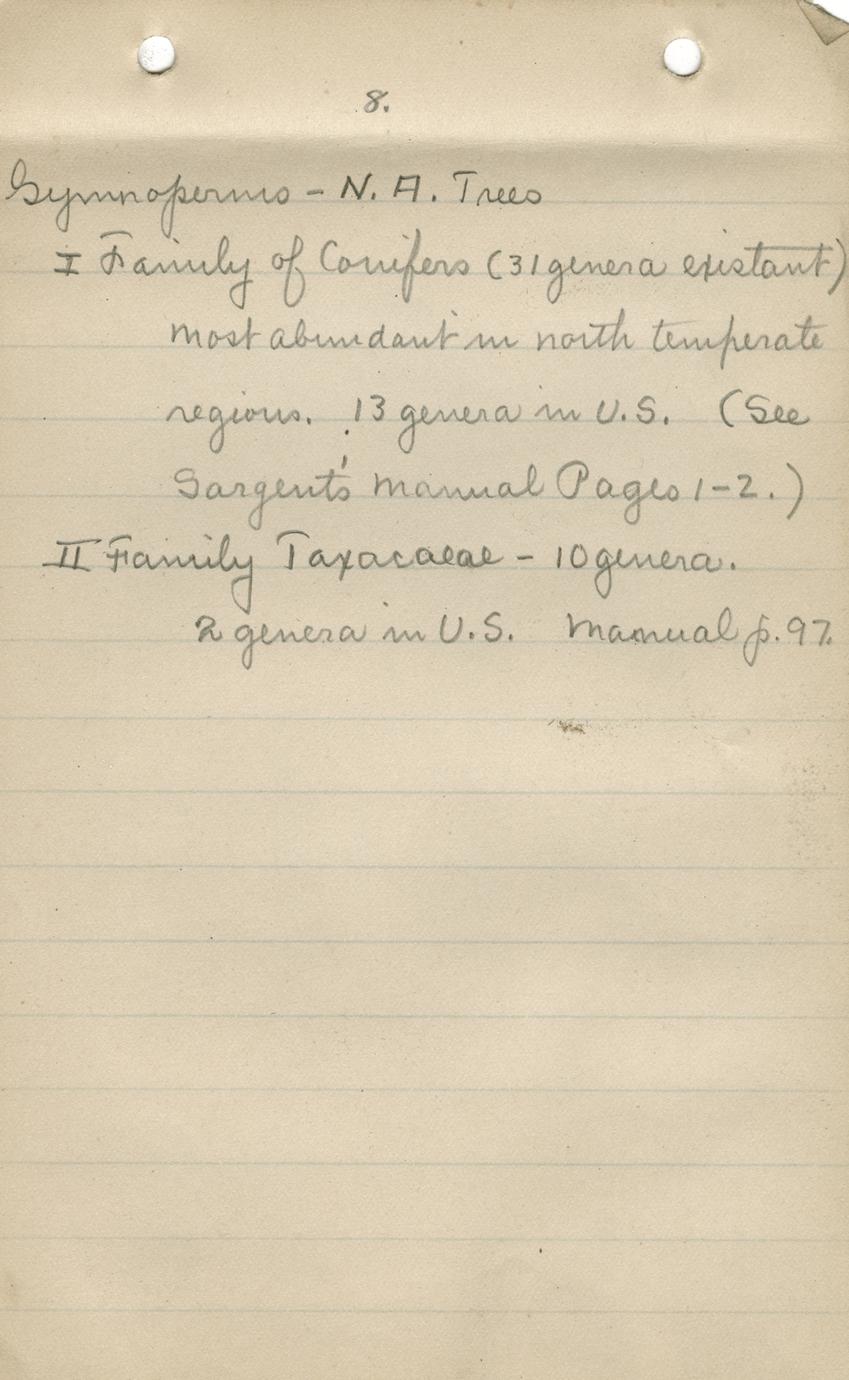 8.
Gymnosperms - N. A. Trees
I Family of Conifers (31 genera existant)
most abundant in north temperate
regions. 13 genera in U.S. (See
Sargent's Manual Pages 1-2.)
II Family Taxacaeae - 10 genera.
2 genera in U.S. Manual p. 97.